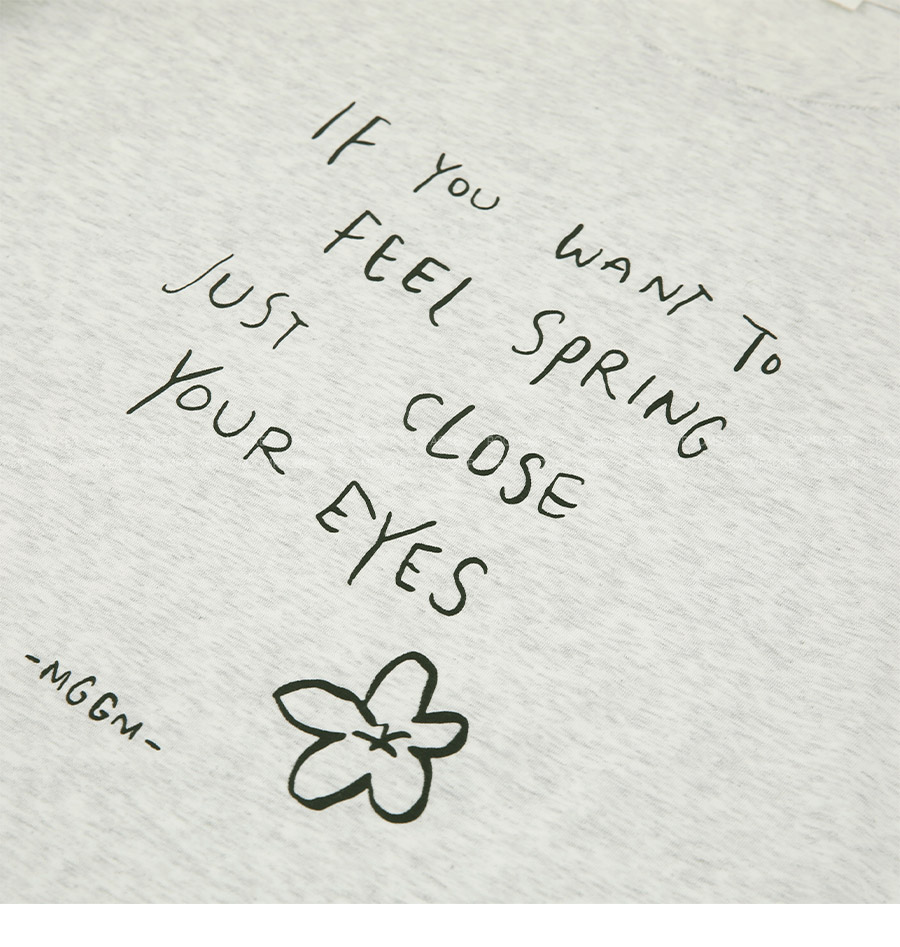 IF YOU WANT TO
FEEL SPRING
JUST CLOSE
YOUR EYES
-MGGM-